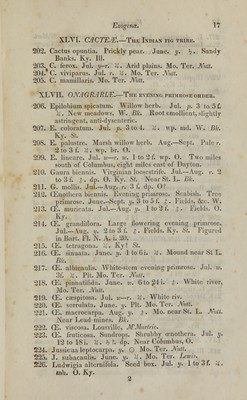 Exogens. 17
XLVI. CACTEÆ.—The Indian fig tribe.
202. Cactus opuntia. Prickly pear. June. y. ♄. Sandy
Banks. Ky. Ill.
203. C. ferox. Jul. y-r. ♃. Arid plains. Mo. Ter. Nutt.
204. C. viviparus. Jul. r. ♃. Mo. Ter. Nutt.
205. C. mamillaris. Mo. Ter. Nutt.
XLVII. ONAGRARIÆ.—The evening primrose order.
206. Epilobium spicatum. Willow herb. Jul. p. 3 to 5 f.
♃. New meadows. W. Bk. Root emollient, slightly
astringent, anti-dysenteric.
207. E. coloratum. Jul. p. 3 to 4. ♃. wp. md. W. Bk.
Ky. St.
208. E. palustre. Marsh willow herb. Aug.—Sept. Pale r.
2 to 3 f. ♃. wp. br. O.
209. E. lineare. Jul. n—r. ♃. 1 to 2 f. wp. O. Two miles
south of Columbus, eight miles east of Dayton.
210. Gaura biennis. Virginian loosestrife. Jul.—Aug. r. 2
to 3 f. ♂. dp. O. Ky. St. Near St. L. Bk.
211. G. mollis. Jul.—Aug. r. 3 f. dp. O!
212. Œnothera biennis. Evening primrose. Scabish. Tree
primrose. June.—Sept. y. 3 to 5 f. ♂. Fields, &c. W.
213. Œ. muricata. Jul.—Aug. y. 1 to 2 f. ♂. Fields. O.
Ky.
214. Œ. grandiflora. Large flowering evening primrose.
Jul.—Aug. y. 2 to 3 f. ♂. Fields. Ky. St. Figured
in Bart. Fl. N. A. i. 20.
215. Œ. tetragona. ♃. Ky! St.
216. Œ. sinuata. June. y. 1 to 6 i. ♃. Mound near St L.
Bk.
217. Œ. albicaulis. White-stem evening primrose. Jul. w.
2 f. ♃. Plt. Mo. Ter. Nutt.
218. Œ. pinnatifida. June. w. 6 to 24 i. ♂. White river,
Mo. Ter. Nutt.
219. Œ. cæspitosa. Jul. w—r. ♃. White riv.
220. Œ. serrulata. June. y. Plt. Mo. Ter. Nutt.
221. Œ. macrocarpa. Aug. y. ♂. Mo near St. L. Nutt.
Near Lead mines. Bk.
222. Œ. viscosa. Lousville, M'Murtrie.
223. Œ. fruticosa. Sundrops. Shrubby œnothera. Jul. y.
12 to 18 i. ♃. ♄ ♄. dp. Near Columbus, O.
224. Jussieua leptocarpa. y. ☉ Mo. Ter. Nutt.
225. J. subacaulis. June. y. ♃. Mo. Ter. Lewis.
226. Ludwigia alternifolia. Seed box. Jul. y. 1 to 3 f. ♃.
mh. O. Ky.
2